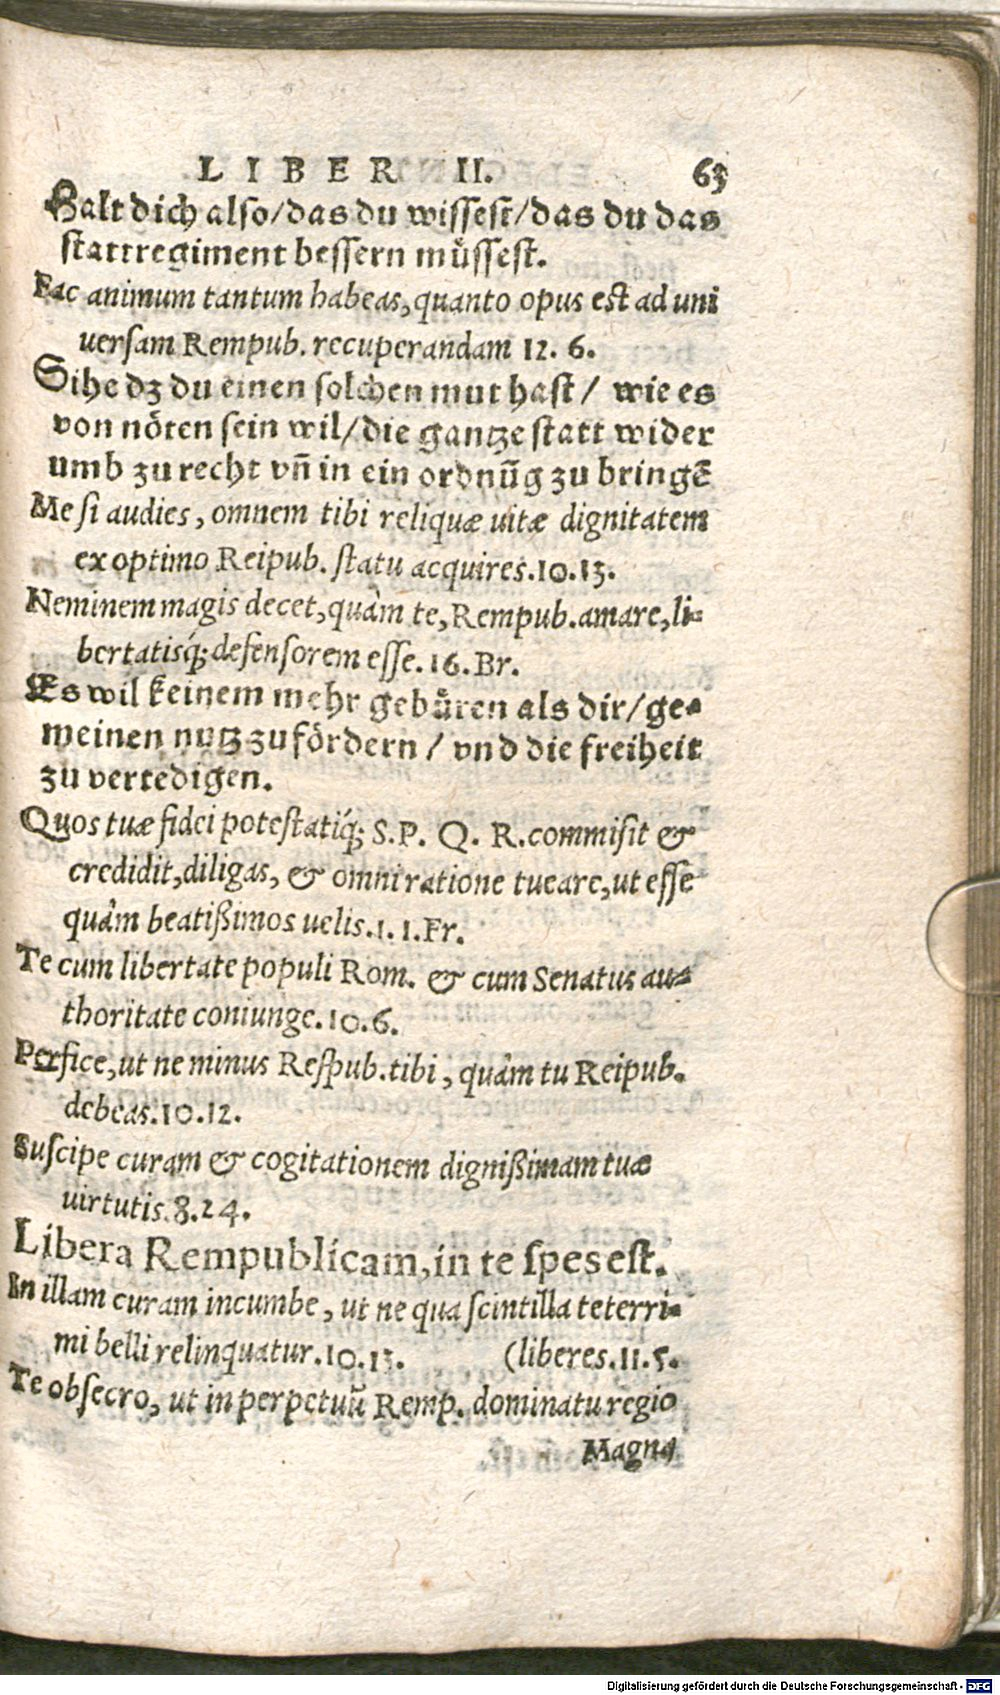 LIBER II. 63
Halt dich also/das du wissest/das du das
stattregiment bessern müssest.
Fac animum tantum habeas, quanto opus est ad uni
uersam Rempub. recuperandam 12. 6.
Sihe dz du einen solchen mut hast/ wie es
von nöten sein wil/die gantze statt wider
umb zu recht vñ in ein ordnũg zu bringẽ
Me si audies, omnem tibi reliquæ uitæ dignitatem
ex optimo Reipub. statu acquires.10.13.
Neminem magis decet, quàm te, Rempub. amare, li-
bertatisq́; defensorem esse. 16. Br.
Es wil keinem mehr gebüren als dir/ge-
meinen nutz zu fördern / vnd die freiheit
zu vertedigen.
Quos tuæ fidei potestatiq́; S.P. Q. R. commisit &
credidit, diligas, & omni ratione tueare, ut esse
quàm beatißimos uelis.1. 1.Fr.
Te cum libertate populi Rom. & cum Senatus au-
thoritate coniunge.10.6.
Perfice, ut ne minus Respub. tibi, quàm tu Reipub.
debeas.10.12.
Suscipe curam & cogitationem dignißimam tuæ
uirtutis.8.24.
Libera Rempublicam, in te spes est.
In illam curam incumbe, ut ne qua scintilla teterri-
mi belli relinquatur.10.13. (liberes.11.5.
Te obsecro, ut in perpetuũ Remp. dominatu regio
Magna
Digitalisierung gefördert durch die Deutsche Forschungsgemeinschaft - DFG